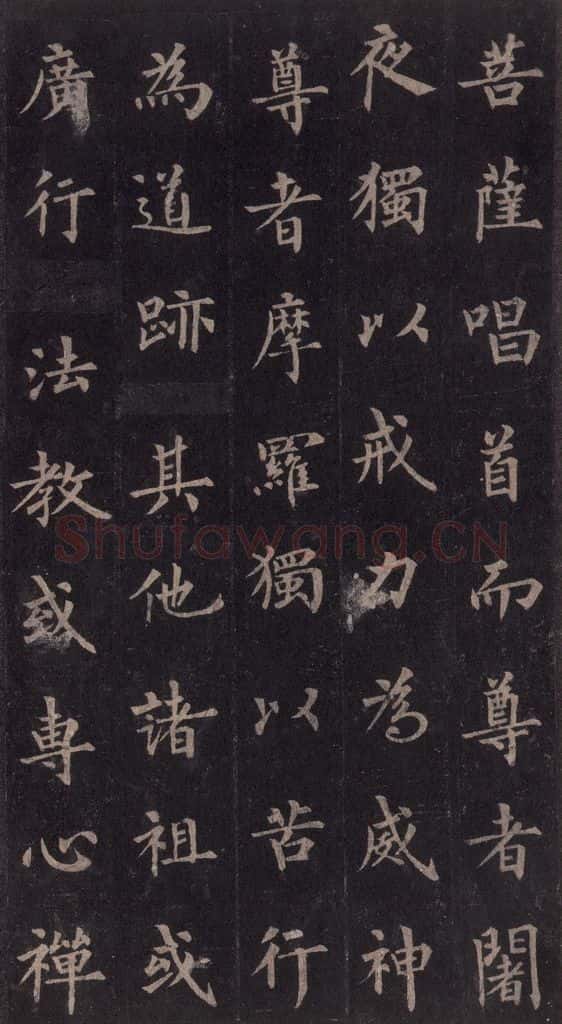 菩薩唱首而尊者闍
夜獨以戒力為威神
尊者摩羅獨以苦行
為道跡其他諸祖或
廣行法教或專心禪
Shufawang.CN